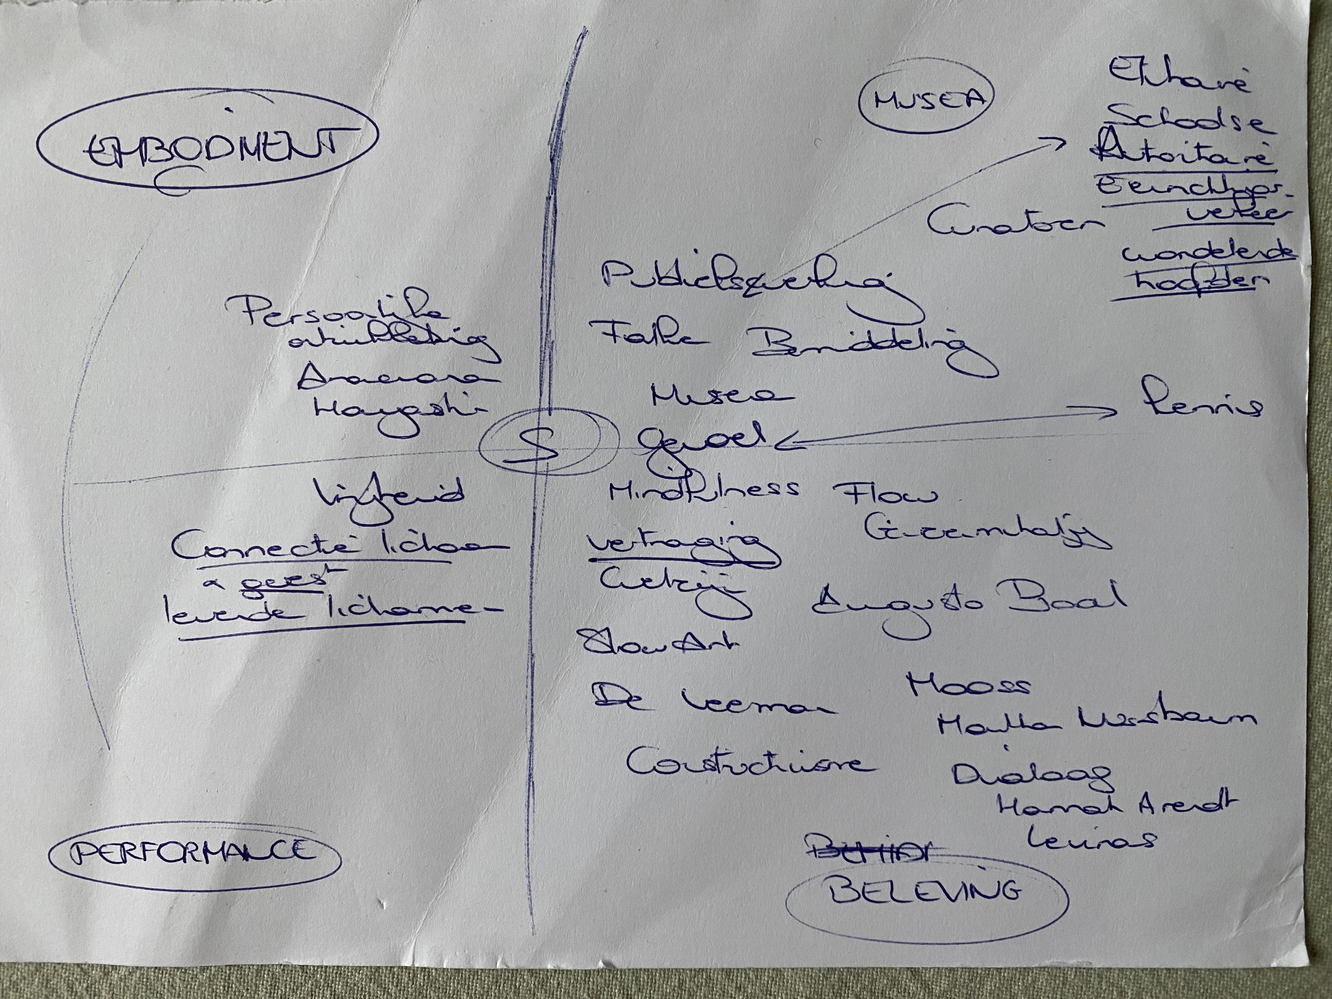 EMBODIMENT
Persoonlijke
ontwikkeling
Arawana
Hayashi
S
Vrijheid
Connectie lichaam
& geest
levende lichamen
PERFORMANCE
MUSEA
Elitaire
Schoolse
Autoritaire
Eenrichtings-
verkeer
wandelende
hoofden
Curatoren
Publiekswerking
Falke Bemiddeling
Musea
gevoel
Kennis
Mindfulness Flow
vertraging
Augusto Boal
Slow Art
De Leeman
Mooss
Martha Nussbaum
Constructivisme
Dialoog
Hannah Arendt
Levinas
BELEVING